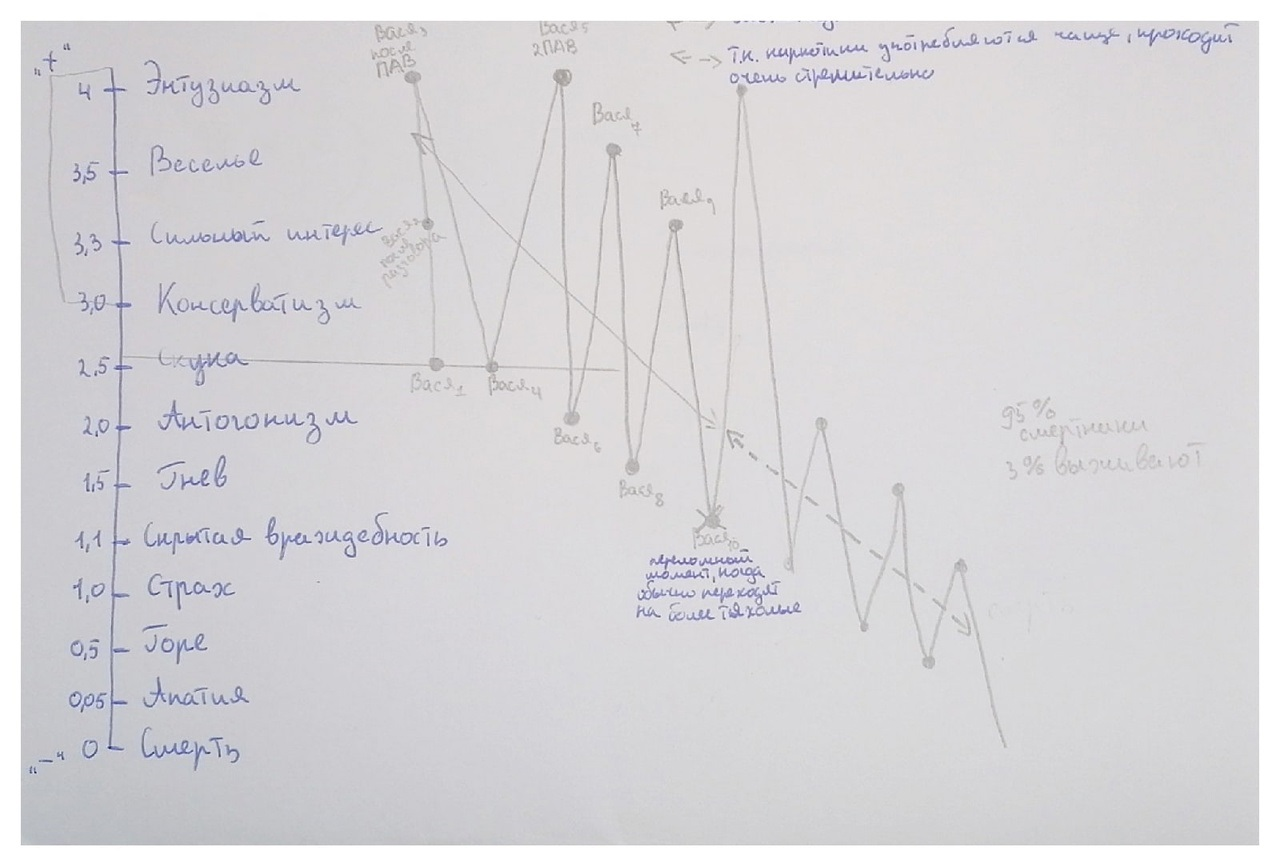 "+"
4 Энтузиазм
3,5 Веселье
3,3 Сильный интерес
3,0 Консерватизм
2,5 Скука
2,0 Антогонизм
1,5 Гнев
1,1 Скрытая враждебность
1,0 Страх
0,5 Горе
0,05 Апатия
"–" 0 Смерть
Вася3
после
ПАВ
Вася2
после
разговора
Вася1
Вася4
Вася5
2ПАВ
Вася6
Вася7
Вася8
Вася9
Вася10
переломный
момент, когда
обычно переходят
на более тяжолые
т.к. наркотики употребляются чаще, проходит
очень стремительно
95%
смертники
3% выживают